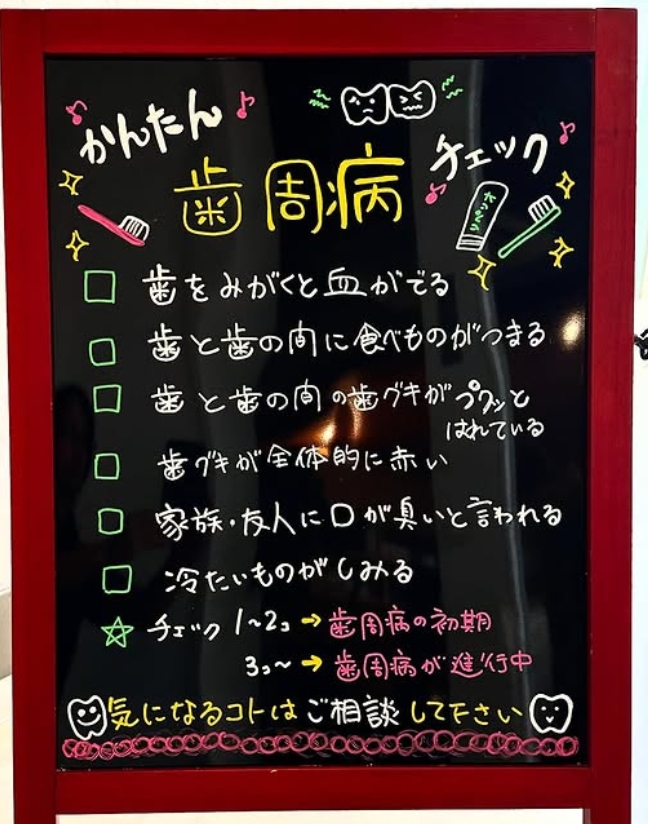 かんたん
歯周病
チェック
歯をみがくと血がでる
歯と歯の間に食べものがつまる
歯と歯の間の歯グキがプクッと
はれている
歯グキが全体的に赤い
家族・友人に口が臭いと言われる
冷たいものがしみる
チェック 1~2コ → 歯周病の初期
3コ~ → 歯周病が進行中
気になるコトはご相談して下さい